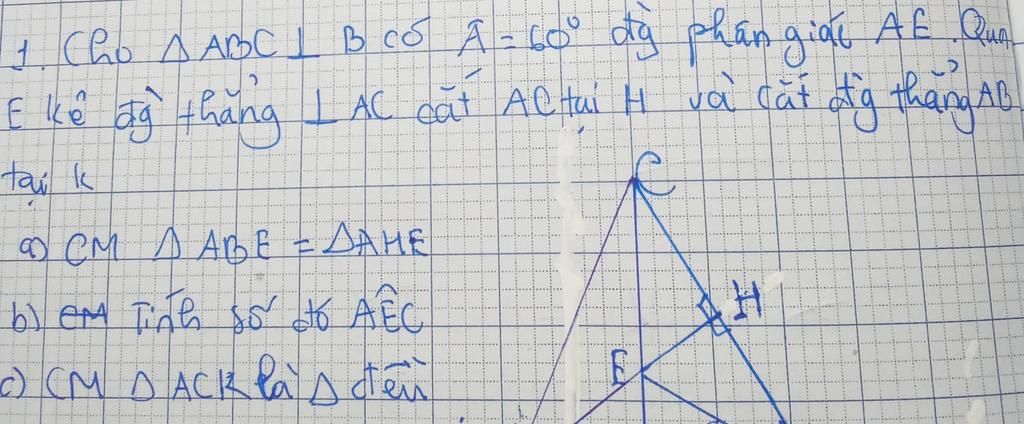 1. Cho Δ ABC ⊥ B có Â = 60° đg phân giác AE. Qua
E kẻ đg thẳng ⊥ AC cắt AC tại H và cắt đg thẳng AB
tại K
a) CM Δ ABE = ΔAHE
b) CM Tính số đo AÊC
c) CM Δ ACK là Δ đều
C
H
E